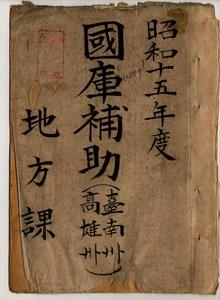 昭和十五年度
國庫補助(臺南州
高雄州)
地方課